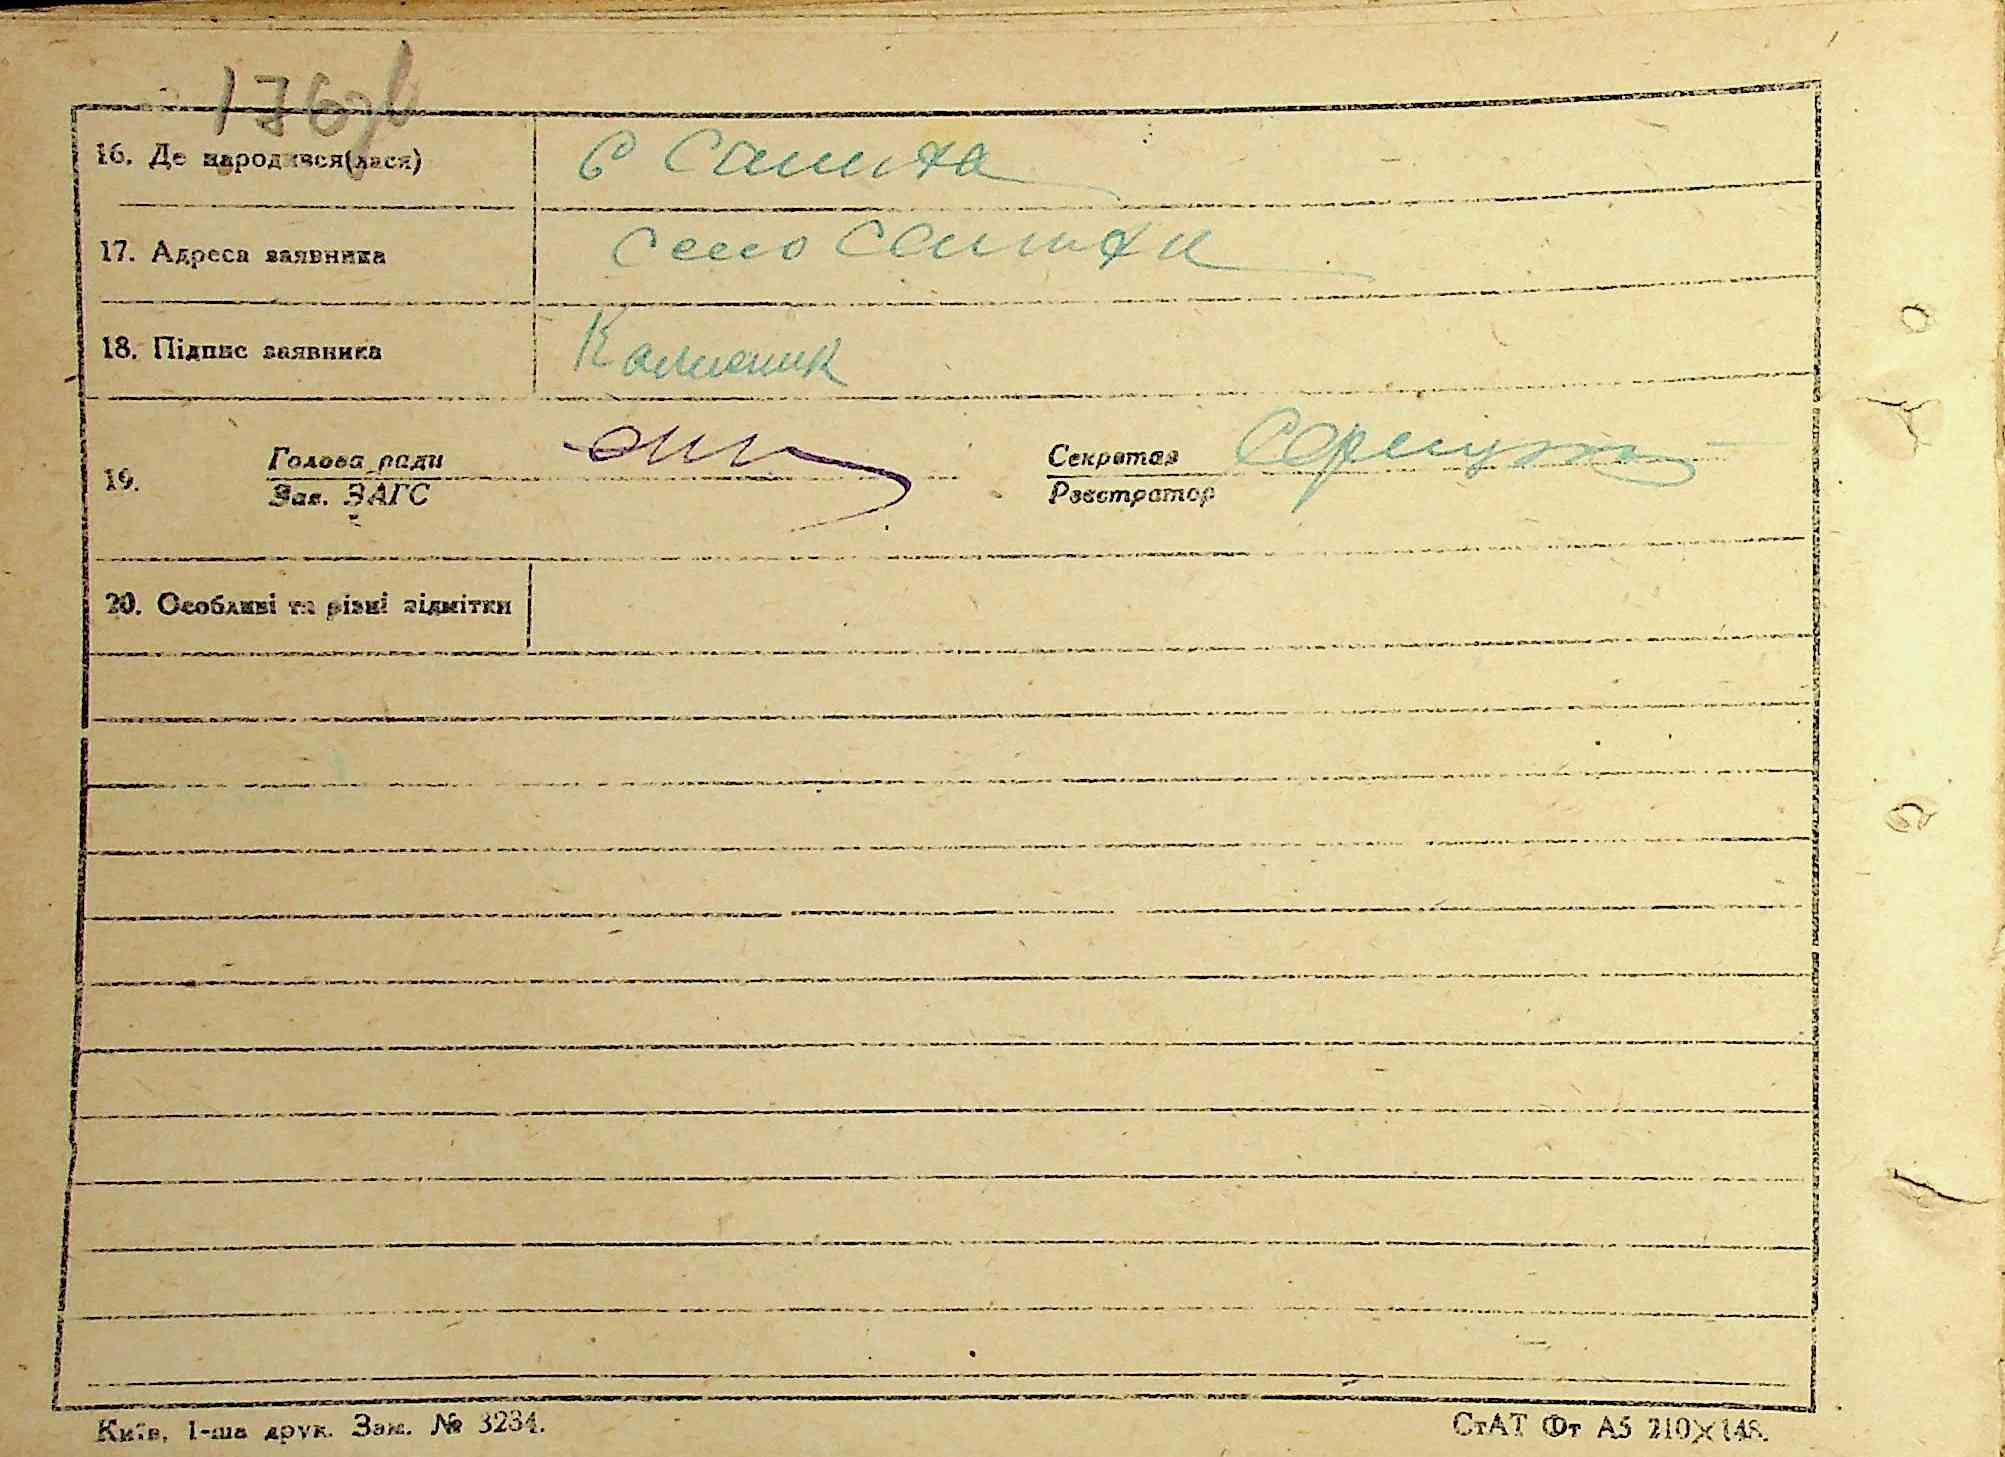 176
16. Де народився(лася)
17. Адреса заявника
село
18. Підпис заявника
19.
Голова ради
Зав. ЗАГС
Секретар
Реєстратор
20. Особливі та різні відмітки
Київ, 1-ша друк. Зам. № 3234.
СтАТ Фт А5 210×148.